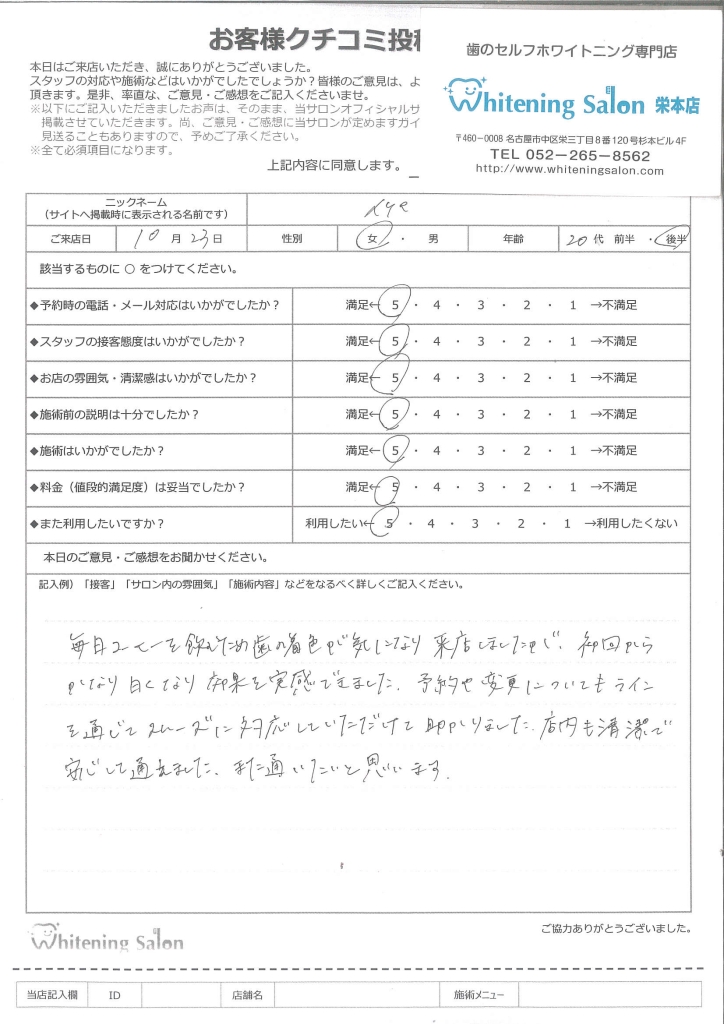 お客様クチコミ投稿
本日はご来店いただき、誠にありがとうございました。
スタッフの対応や施術などはいかがでしたでしょうか？皆様のご意見は、よ
頂きます。是非、率直な、ご意見・ご感想をご記入くださいませ。
※以下にご記入いただきましたお声は、そのまま、当サロンオフィシャルサ
掲載させていただきます。尚、ご意見・ご感想に当サロンが定めますガイ
見送ることもありますので、予めご了承ください。
※全て必須項目になります。
上記内容に同意します。
歯のセルフホワイトニング専門店
Whitening Salon 栄本店
〒460-0008 名古屋市中区栄三丁目8番120号杉本ビル4F
TEL 052-265-8562
http://www.whiteningsalon.com
ニックネーム
（サイトへ掲載時に表示される名前です）
ご来店日 10 月 23 日 性別 女 ・ 男 年齢 20 代 前半 ・ 後半
該当するものに ○ をつけてください。
◆予約時の電話・メール対応はいかがでしたか？ 満足← 5 ・ 4 ・ 3 ・ 2 ・ 1 →不満足
◆スタッフの接客態度はいかがでしたか？ 満足← 5 ・ 4 ・ 3 ・ 2 ・ 1 →不満足
◆お店の雰囲気・清潔感はいかがでしたか？ 満足← 5 ・ 4 ・ 3 ・ 2 ・ 1 →不満足
◆施術前の説明は十分でしたか？ 満足← 5 ・ 4 ・ 3 ・ 2 ・ 1 →不満足
◆施術はいかがでしたか？ 満足← 5 ・ 4 ・ 3 ・ 2 ・ 1 →不満足
◆料金（値段的満足度）は妥当でしたか？ 満足← 5 ・ 4 ・ 3 ・ 2 ・ 1 →不満足
◆また利用したいですか？ 利用したい← 5 ・ 4 ・ 3 ・ 2 ・ 1 →利用したくない
本日のご意見・ご感想をお聞かせください。
記入例）「接客」「サロン内の雰囲気」「施術内容」などをなるべく詳しくご記入ください。
毎日コーヒーを飲むため歯の着色が気になり来店しましたが、初回から
かなり白くなり効果を実感できました。予約や変更についてもライン
を通じてスムーズに対応していただけて助かりました。店内も清潔で
安心して通えました。また通いたいと思います。
ご協力ありがとうございました。
Whitening Salon
当店記入欄 ID 店舗名 施術メニュー